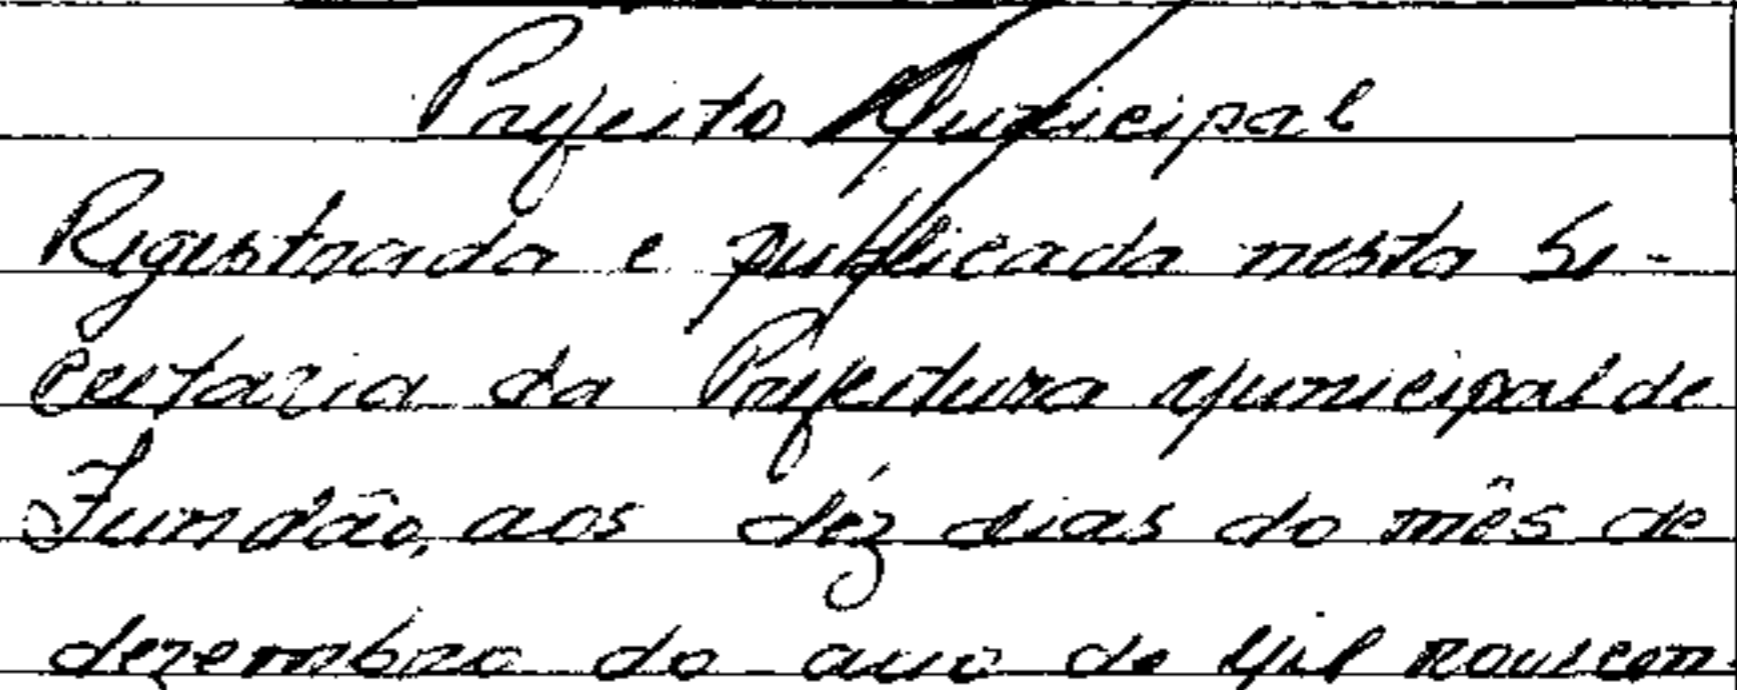 Prefeito Municipal
Registrada e publicada nesta Se-
cretaria da Prefeitura Municipal de
Fundão, aos déz dias do mês de
dezembro do ano de Mil novecen-